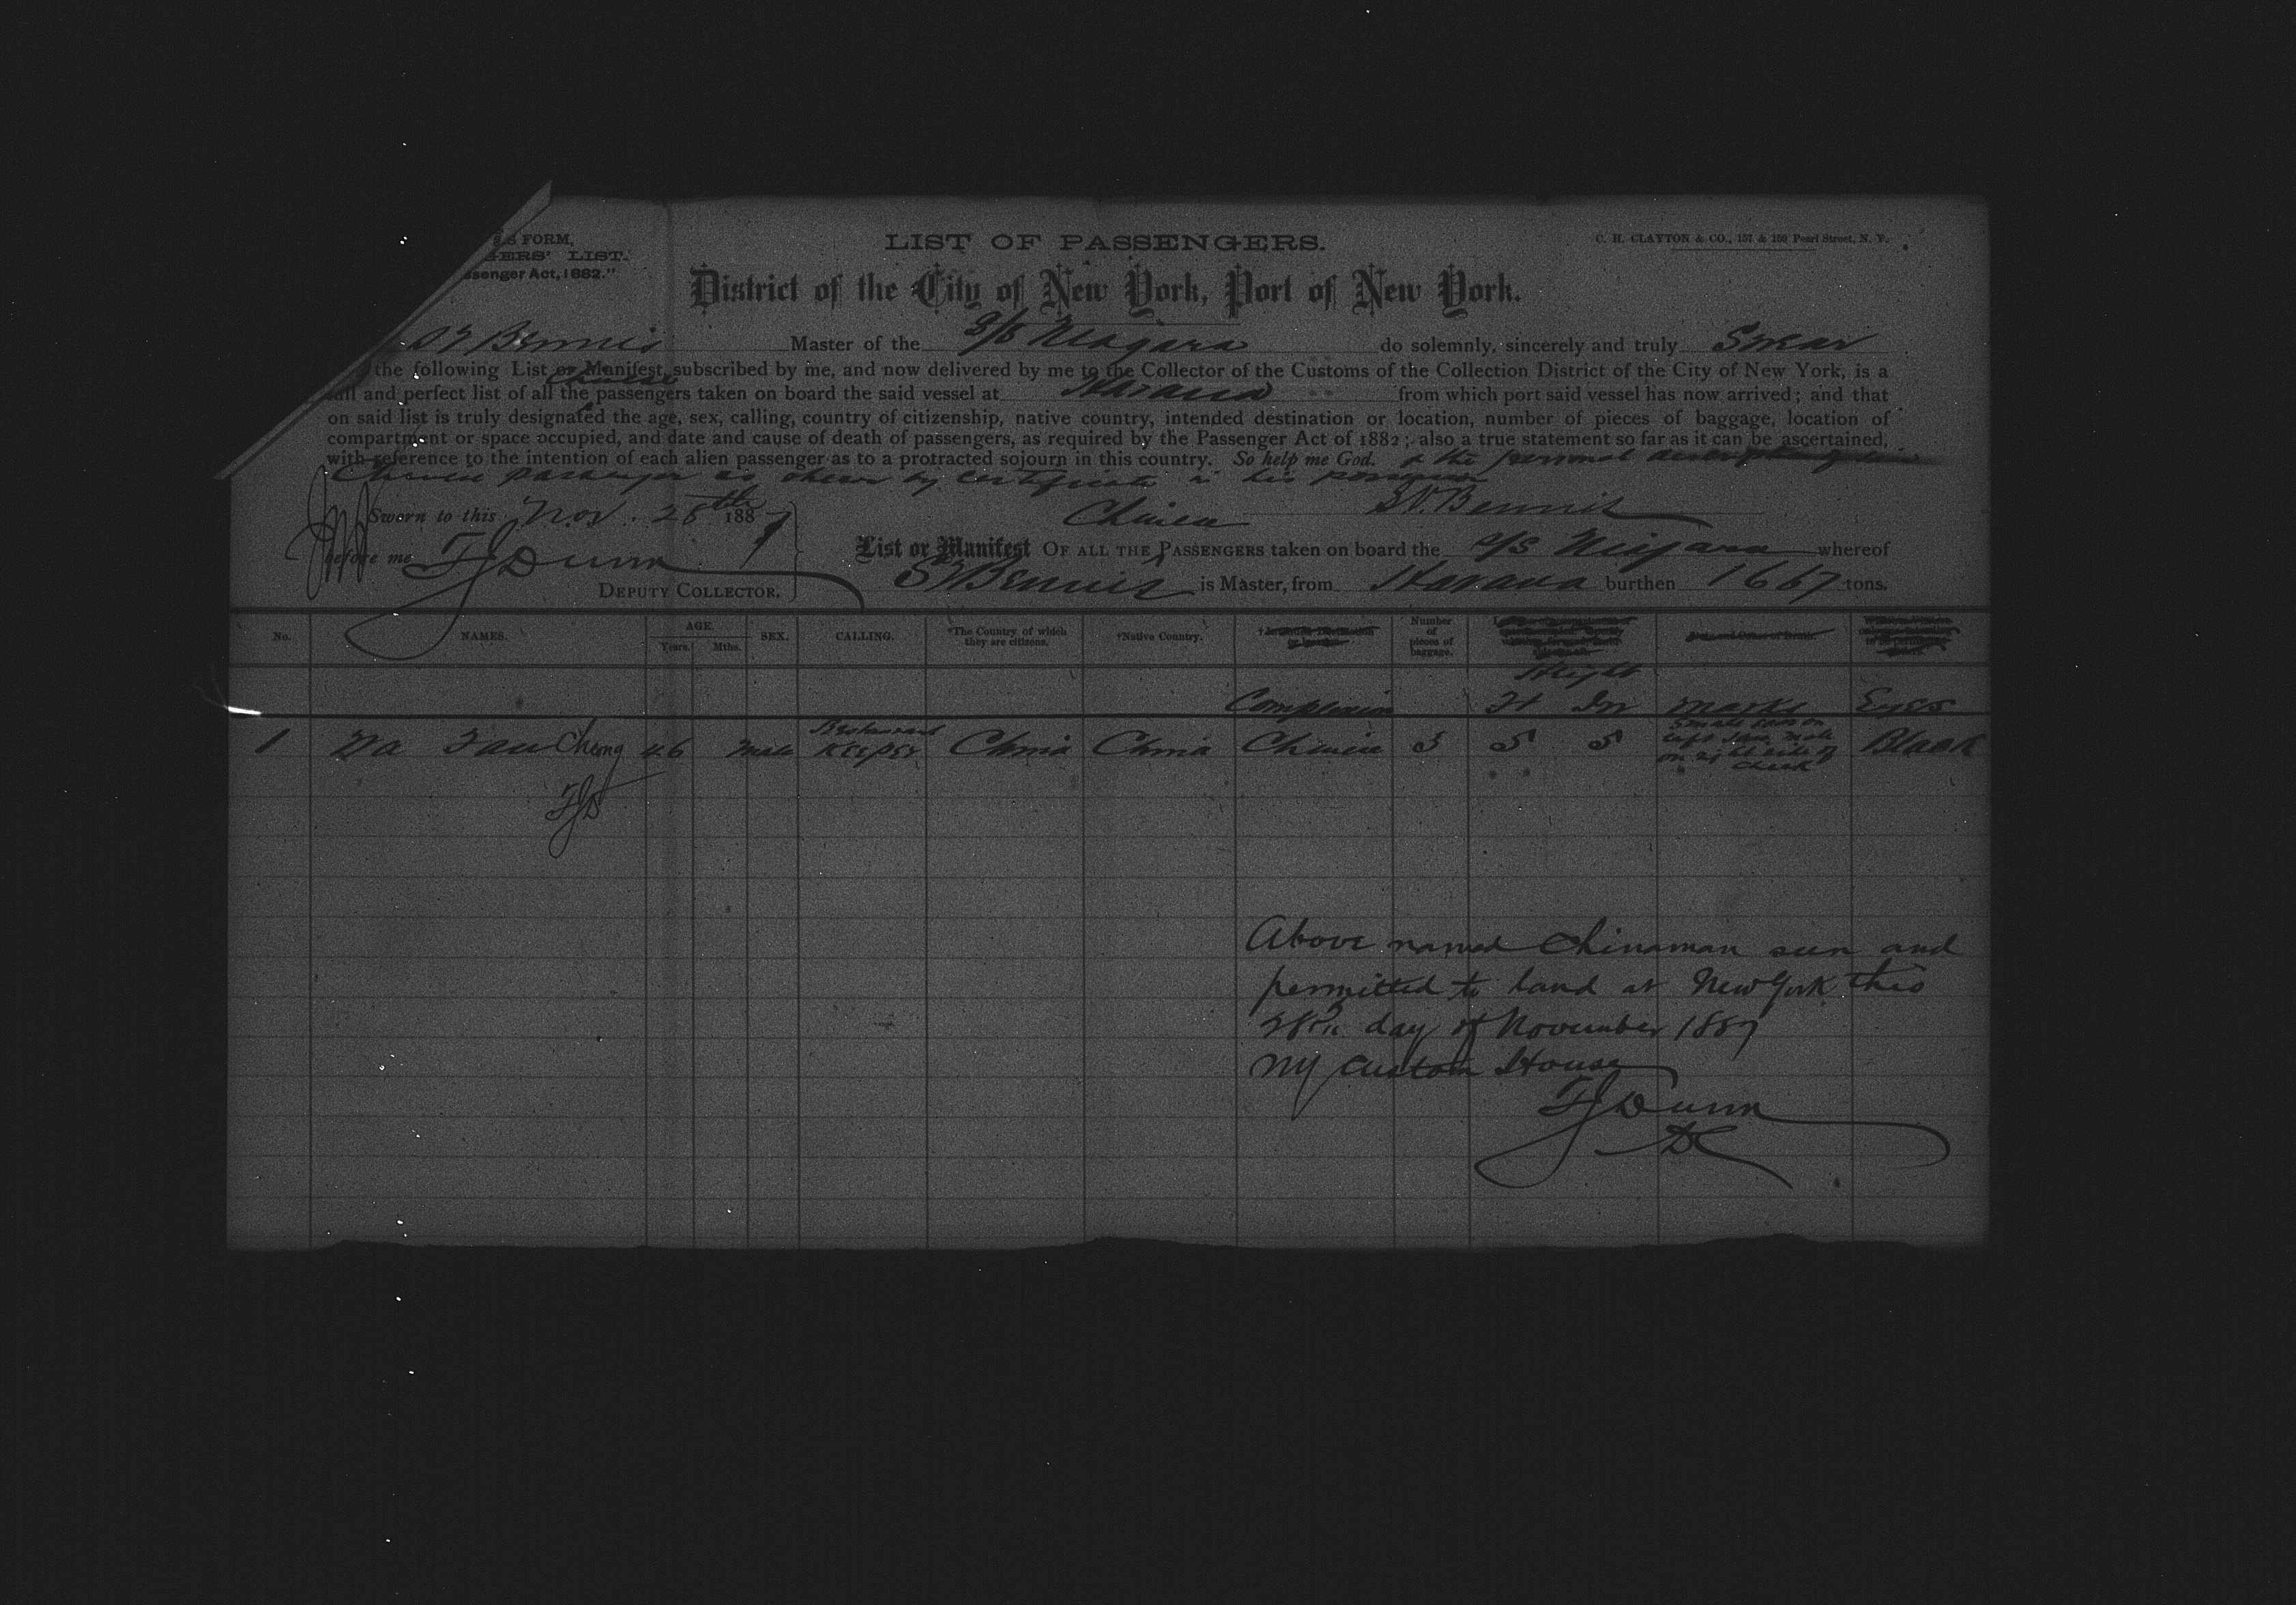 S FORM,
GERS' LIST.
ssenger Act, 1882."
LIST OF PASSENGERS.
C. H. CLAYTON & CO., 157 & 159 Pearl Street, N. Y.
District of the City of New York, Port of New York.
Bennis Master of the S/S Niagara do solemnly, sincerely and truly Swear
the following List or Manifest, subscribed by me, and now delivered by me to the Collector of the Customs of the Collection District of the City of New York, is a
Chinese
full and perfect list of all the passengers taken on board the said vessel at Havana from which port said vessel has now arrived; and that
on said list is truly designated the age, sex, calling, country of citizenship, native country, intended destination or location, number of pieces of baggage, location of
compartment or space occupied, and date and cause of death of passengers, as required by the Passenger Act of 1882; also a true statement so far as it can be ascertained,
with reference to the intention of each alien passenger as to a protracted sojourn in this country. So help me God. & the personal description of
Chinese passenger as shewn by certificate in his possession
Sworn to this Nov. 28th 1887
Bennis
before me TJ Dunn
DEPUTY COLLECTOR.
Chinese
List or Manifest OF ALL THE PASSENGERS taken on board the S/S Niagara whereof
Bennis is Master, from Havana burthen 1667 tons.
No. NAMES. AGE. Years. Mths. SEX. CALLING. *The Country of which they are citizens. †Native Country. Number of pieces of baggage.
Height
Complexion Ft In Marks Eyes
1 Cheong 46 Male Restaurant Keeper China China Chinese 5 5 5 Small scar on left jaw, mole on right side of cheek Black
TJD
Above named Chinaman seen and
permitted to land at New York this
28th day of November 1887
NY Custom House
TJ Dunn
DC